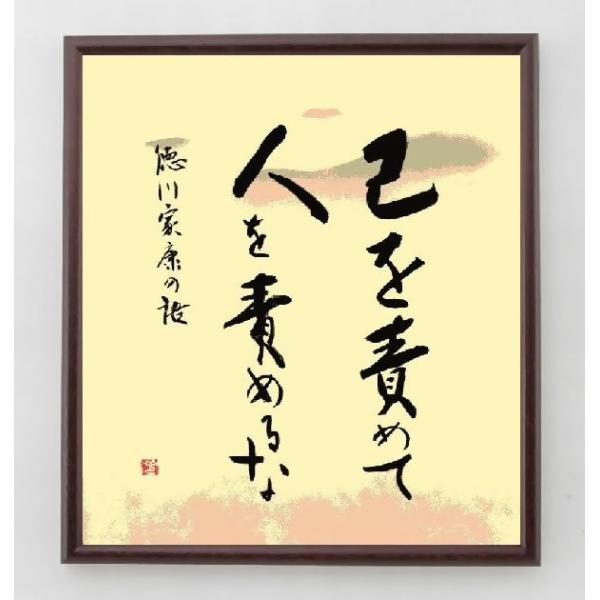 己を責めて
人を責めるな
徳川家康の語